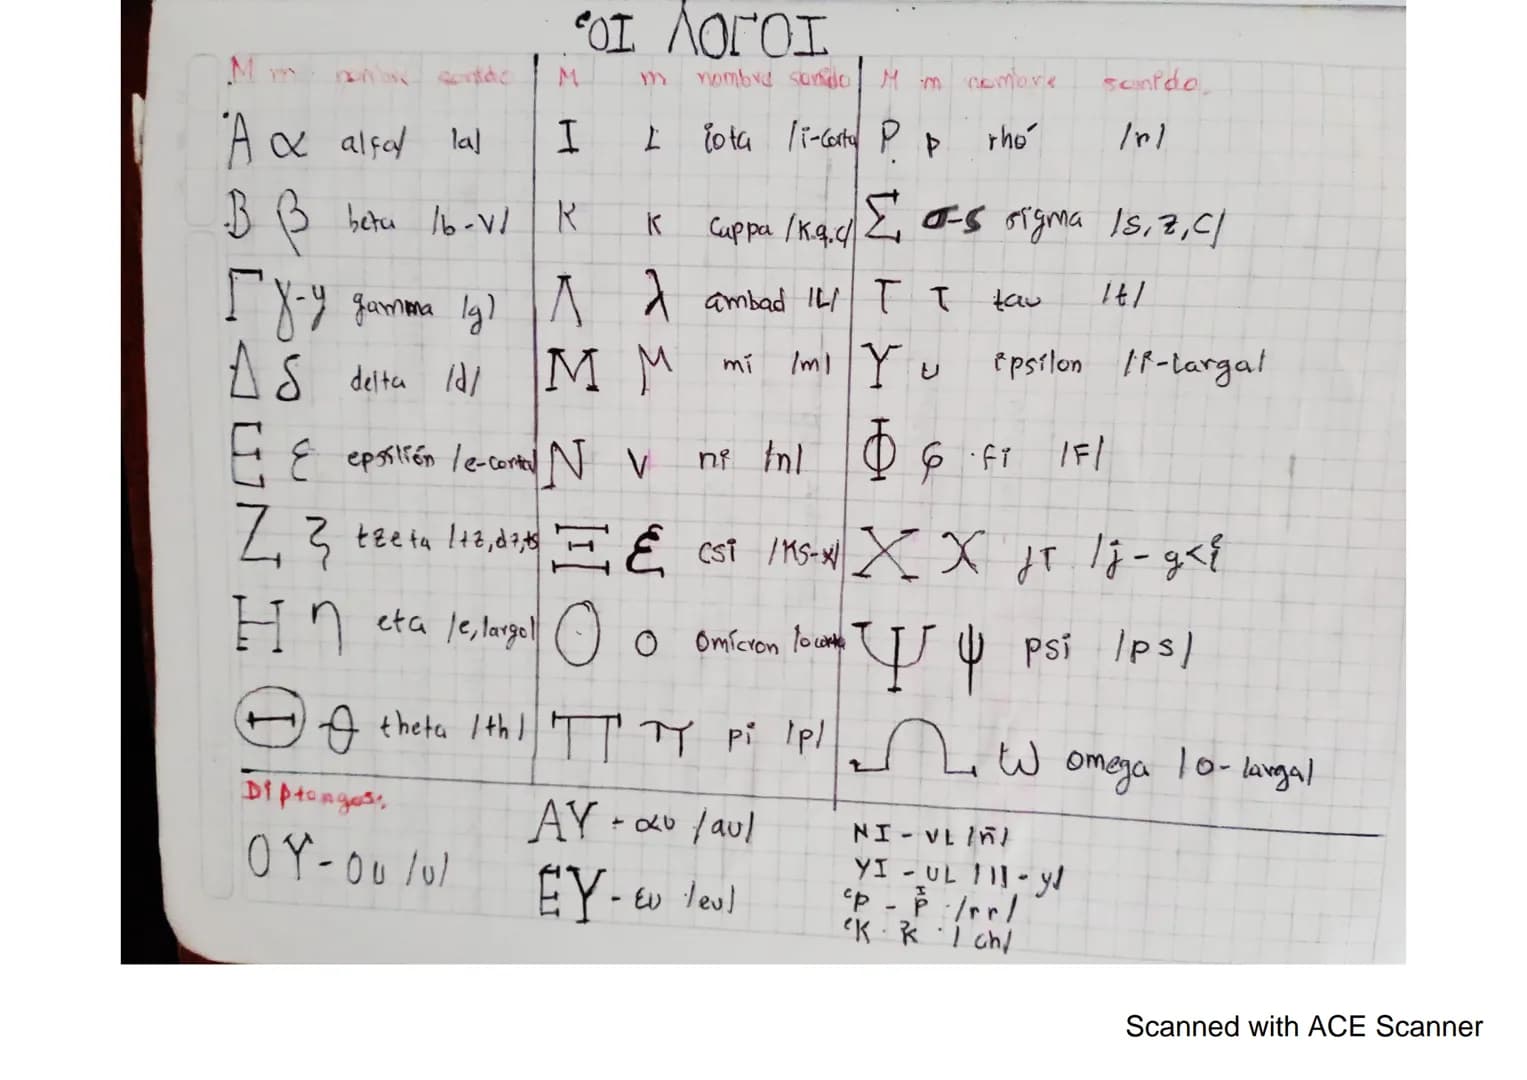 ʽΟΙ ΛΟΓΟΙ
M m nombre sonido
Α α alfa /a/
Β β beta /b-v/
Γ γ-y gamma /g/
Δ δ delta /d/
Ε ε epsilón /e-corta/
Ζ ζ tzeta /tz,dz,ts
Η η eta /e,larga/
Θ θ theta /th/
M m nombre sonido
Ι ι iota /i-corta
Κ κ Cuppa /K.q.c/
Λ λ ambad /L/
Μ μ mi /m/
Ν ν ni /n/
Ξ ξ csi /KS-x/
Ο ο omicron /o corta
Π π pi /p/
M m nombre sonido.
Ρ ρ rhó /r/
Σ σ-s sigma /s,z,c/
Τ τ tau /t/
Υ υ ipsilon /i-larga/
Φ φ fi /F/
Χ χ ji /j-g<
Ψ ψ psi /ps/
Ω ω omega /o-larga/
Diptongos.
ΟΥ-ου /u/
ΑΥ-αυ /au/
ΕΥ-ευ /eu/
ΝΙ-νι /ñ/
ΥΙ-υι /ll-y/
ʽΡ - /rr/
ʽΚ - /ch/
Scanned with ACE Scanner